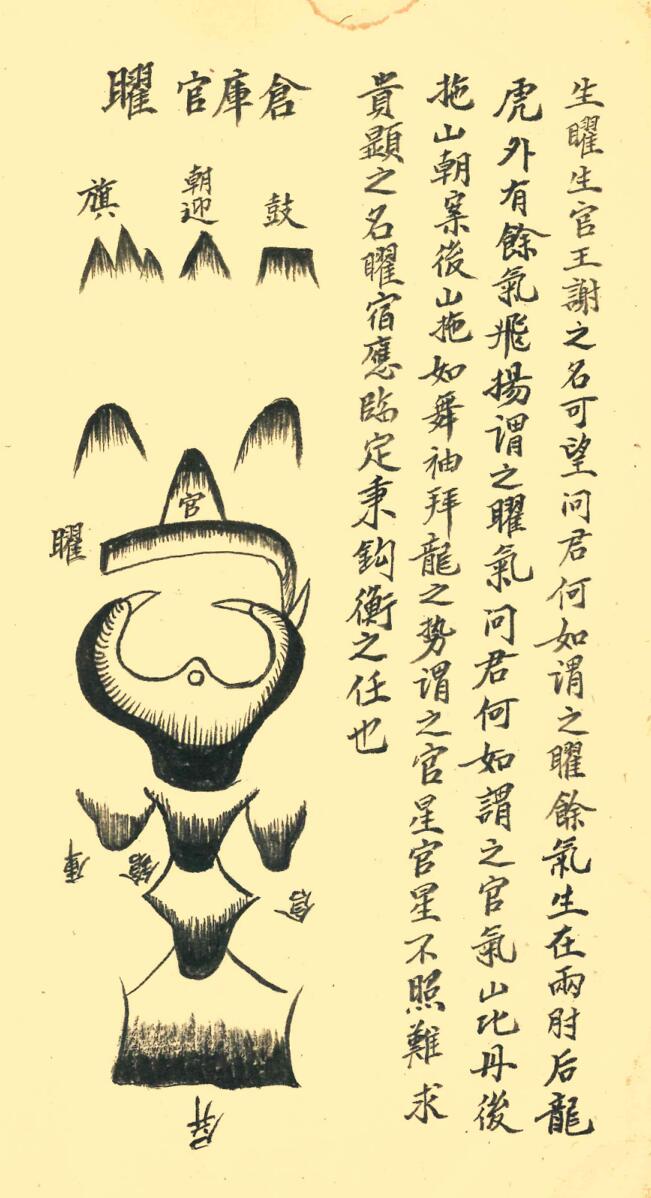 生曜生官王謝之名可望问君何如谓之曜餘氣生在兩肘后龍
虎外有餘氣飛揚谓之曜氣问君何如謂之官氣山比丹後
拖山朝案後山拖如舞袖拜龍之势谓之官星官星不照難求
貴顯之名曜宿應臨定秉鈎衡之任也
倉庫官曜
鼓
朝迎
旗
官
曜
倉
庫
屏